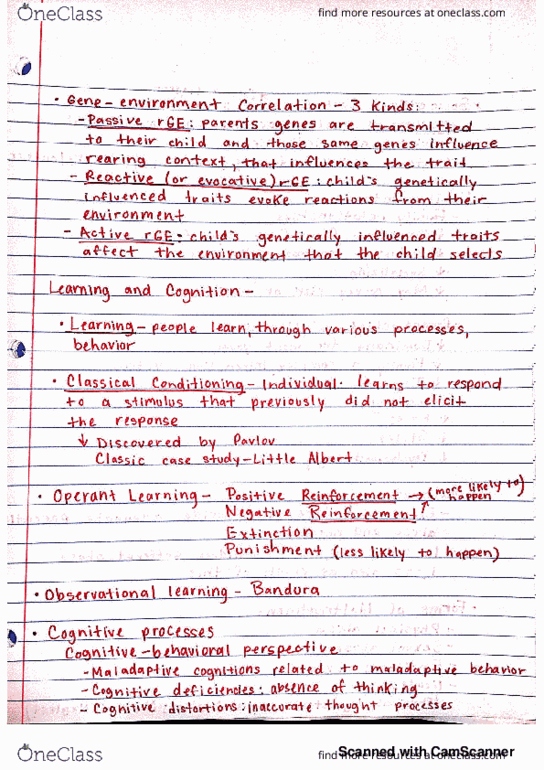 OneClass
find more resources at oneclass.com
• Gene-environment Correlation - 3 Kinds:
- Passive rGE: parents genes are transmitted
to their child and those same genes influence
rearing context, that influences the trait
- Reactive (or evocative) rGE: child's genetically
influenced traits evoke reactions from their
environment
- Active rGE: child's genetically influenced traits
affect the environment that the child selects
Learning and Cognition -
• Learning - people learn, through various processes,
behavior
• Classical Conditioning - Individual learns to respond
to a stimulus that previously did not elicit
the response
↓ Discovered by Pavlov
Classic case study - Little Albert
• Operant Learning - Positive Reinforcement → (more likely to happen)
Negative Reinforcement ↑
Extinction
Punishment (less likely to happen)
• Observational learning - Bandura
• Cognitive processes
Cognitive-behavioral perspective
- Maladaptive cognitions related to maladaptive behavior
- Cognitive deficiencies: absence of thinking
- Cognitive distortions: inaccurate thought processes
OneClass
find more resources at oneclass.com
Scanned with CamScanner